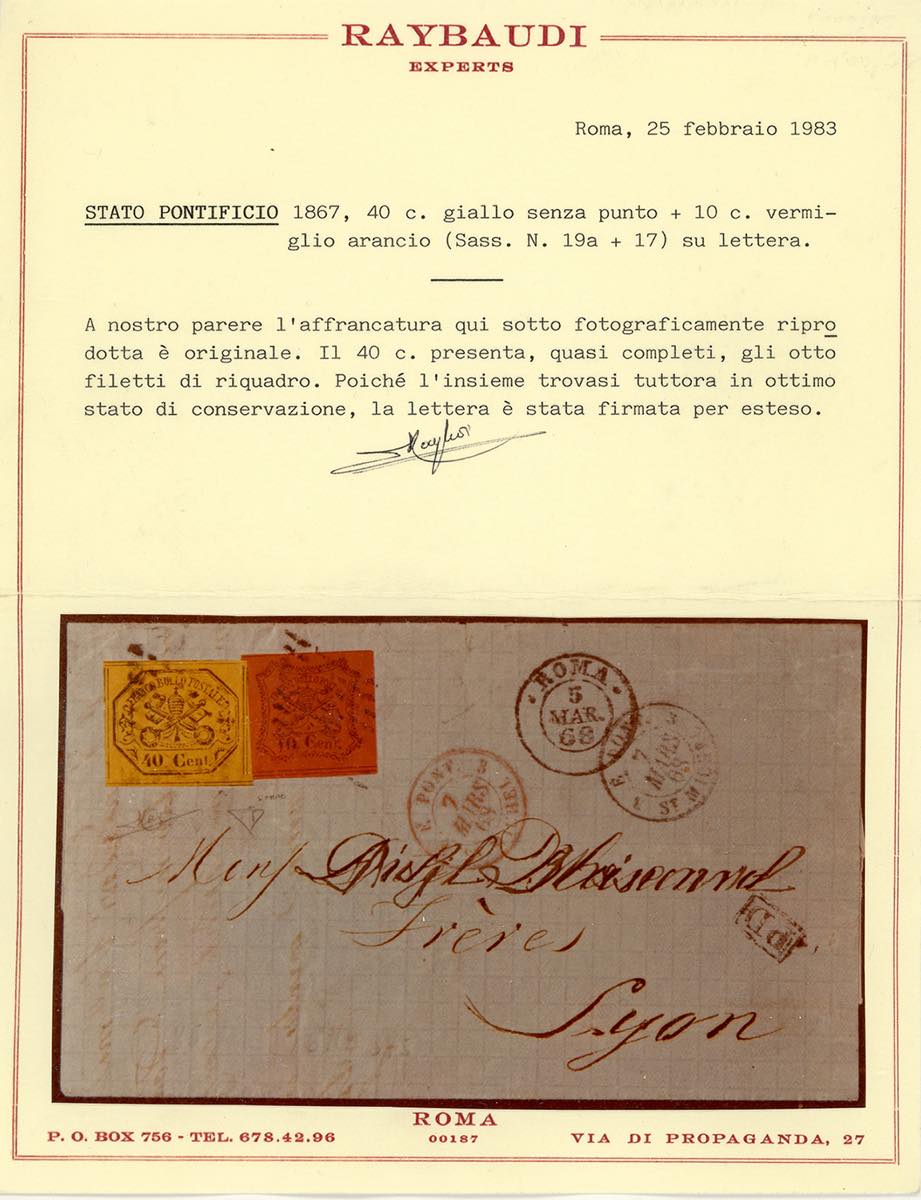 RAYBAUDI
EXPERTS
Roma, 25 febbraio 1983
STATO PONTIFICIO 1867, 40 c. giallo senza punto + 10 c. vermi-
glio arancio (Sass. N. 19a + 17) su lettera.
A nostro parere l'affrancatura qui sotto fotograficamente ripro
dotta è originale. Il 40 c. presenta, quasi completi, gli otto
filetti di riquadro. Poiché l'insieme trovasi tuttora in ottimo
stato di conservazione, la lettera è stata firmata per esteso.
BOLLO POSTALE
40 Cent.
10 Cent.
ROMA
5
MAR.
68
E. PONT.
7
MARS
68
7
MARS
68
Frères
PD
Lyon
ROMA
P. O. BOX 756 - TEL. 678.42.96
00187
VIA DI PROPAGANDA, 27